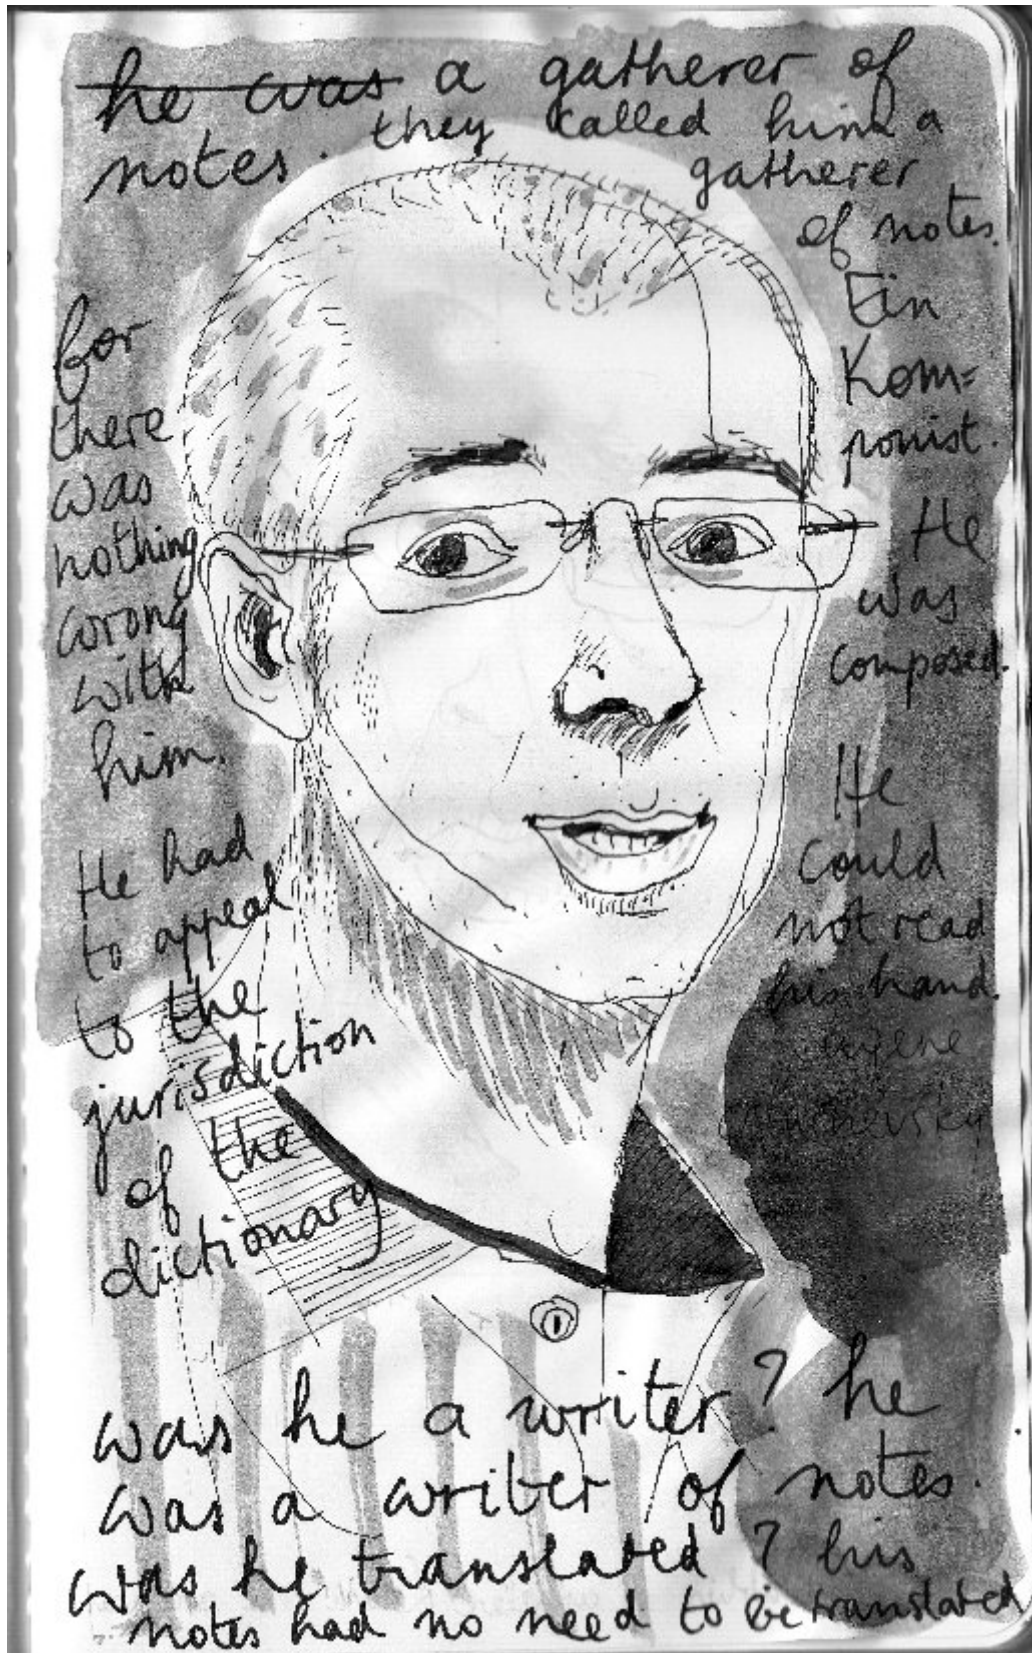 he was a gatherer of
notes. they called him a
gatherer
of notes.
Ein
Kom=
ponist.
He
was
composed.
He
could
not read
his hand.
for
there
was
nothing
wrong
with
him.
He had
to appeal
to the
jurisdiction
of the
dictionary
was he a writer? he
was a writer of notes.
was he translated? his
notes had no need to be translated